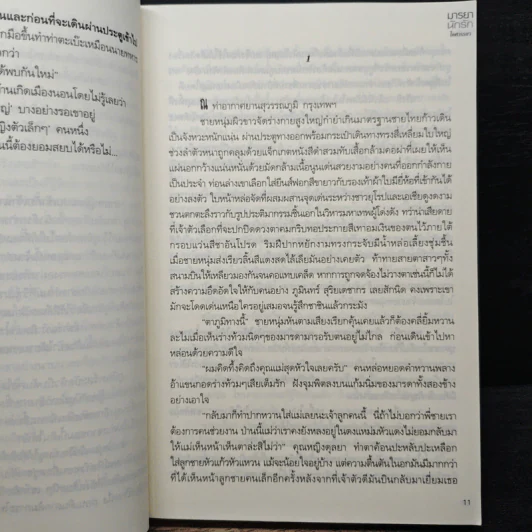 นและก่อนที่จะเดินผ่านประตูเข้าไป
กมือขึ้นทำท่าตะเบ๊ะเหมือนนายทหาร
กว่า
ด้พบกันใหม่"
้านเกิดเมืองนอนโดยไม่รู้เลยว่า
ญ่' บางอย่างรอเขาอยู่
ญิงตัวเล็กๆ' คนหนึ่ง
นนี้ต้องยอมสยบได้หรือไม่...
มารยา
นักรัก
1
ณ ท่าอากาศยานสุวรรณภูมิ กรุงเทพฯ
ชายหนุ่มผิวขาวจัดร่างกายสูงใหญ่กำยำเกินมาตรฐานชายไทยก้าวเดิน
เป็นจังหวะหนักแน่น ผ่านประตูทางออกพร้อมกระเป๋าเดินทางทรงสี่เหลี่ยมใบใหญ่
ช่วงลำตัวหนาถูกคลุมด้วยแจ็กเกตหนังสีดำสวมทับเสื้อกล้ามคอผ่าที่เผยให้เห็น
แผ่นอกกว้างแน่นหนั่นด้วยมัดกล้ามเนื้อนูนเด่นสวยงามอย่างคนที่ออกกำลังกาย
เป็นประจำ ท่อนล่างเขาเลือกใส่ยีนส์ฟอกสีขายาวกับรองเท้าผ้าใบมียี่ห้อที่เข้ากันได้
อย่างลงตัว ใบหน้าหล่อจัดที่ผสมผสานจุดเด่นระหว่างชาวยุโรปและเอเชียดูงดงาม
ชวนตกตะลึงราวกับรูปประติมากรรมชิ้นเอกในวิหารมหาเทพผู้โด่งดัง ทว่าน่าเสียดาย
ที่เจ้าตัวเลือกที่จะปกปิดดวงตาคมกริบทอประกายสีเทาอมเงินของตนไว้ภายใต้
กรอบแว่นสีชาอันโปรด ริมฝีปากหยักงามทรงกระจับมีน้ำหล่อเลี้ยงชุ่มชื้น
เมื่อชายหนุ่มส่งเรียวลิ้นสีแดงสดไล้เลียมันอย่างเคยตัว ท้าทายสายตาสาวๆทั้ง
สนามบินให้เหลียวมองกันจนคอแทบเคล็ด หากการถูกจดจ้องไม่วางตาเช่นนี้ก็ไม่ได้
สร้างความอึดอัดใจให้กับคนอย่าง ภูมินทร์ สุริยเดชากร เลยสักนิด คงเพราะเขา
มักจะโดดเด่นเหนือใครอยู่เสมอจนรู้สึกชาชินแล้วกระมัง
"ตาภูมิทางนี้" ชายหนุ่มหันตามเสียงเรียกคุ้นเคยแล้วก็ต้องคลี่ยิ้มหวาน
ละไมเมื่อเห็นร่างท้วมนิดๆของมารดามารอรับตนอยู่ไม่ไกล ก่อนเดินเข้าไปหา
หล่อนด้วยความดีใจ
"ผมคิดถึ้งคิดถึงคุณแม่สุดหัวใจเลยครับ" คนหล่อหยอดคำหวานพลาง
อ้าแขนกอดร่างท้วมๆเสียเต็มรัก ฝังจุมพิตลงบนแก้มนิ่มของมารดาทั้งสองข้าง
อย่างเอาใจ
"กลับมาก็ทำปากหวานใส่แม่เลยนะเจ้าลูกคนนี้ นี่ถ้าไม่บอกว่าพี่ชายเรา
ต้องการคนช่วยงาน ป่านนี้แม่ว่าเราคงยังหลงอยู่ในดงแหม่มหัวแดงไม่ยอมกลับมา
ให้แม่เห็นหน้าเห็นตาล่ะสิไม่ว่า" คุณหญิงดุลยา ทำตาค้อนปะหลับปะเหลือก
ใส่ลูกชายหัวแก้วหัวแหวน แม้จะน้อยใจอยู่บ้าง แต่ความตื้นตันในอกมันมีมากกว่า
ที่ได้เห็นหน้าลูกชายคนเล็กอีกครั้งหลังจากที่เจ้าตัวตีมึนบินกลับมาเยี่ยมเธอ
11